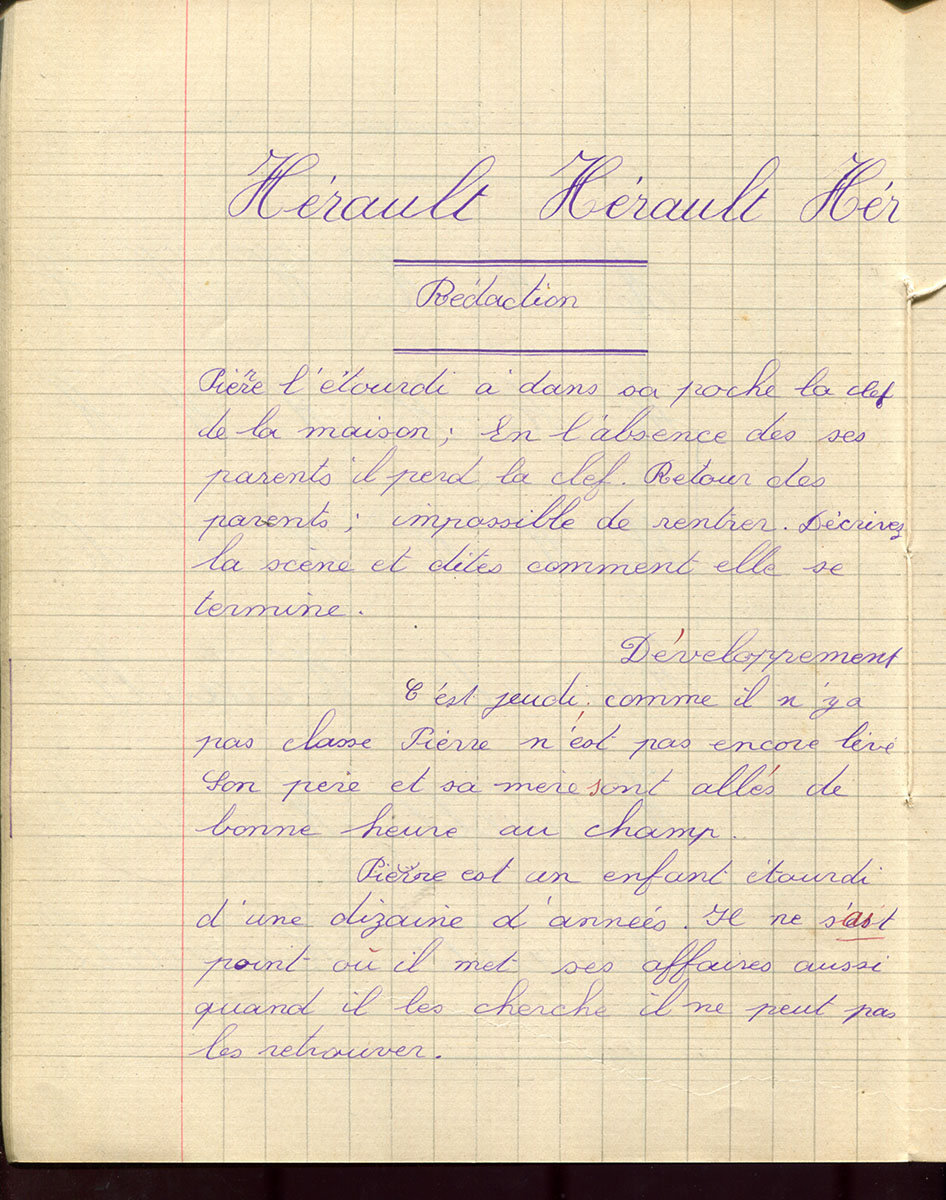 Hérault Hérault Hér
Rédaction
Pierre l'étourdi a dans sa poche la clef
de la maison ; En l'absence des ses
parents il perd la clef. Retour des
parents ; impossible de rentrer. Décrivez
la scène et dites comment elle se
termine.
Développement
C'est jeudi. comme il n'y a
pas classe Pierre n'est pas encore levé
Son père et sa mère sont allés de
bonne heure au champ.
Pierre est un enfant étourdi
d'une dizaine d'années. Il ne
point où il met ses affaires aussi
quand il les cherche il ne peut pas
les retrouver.